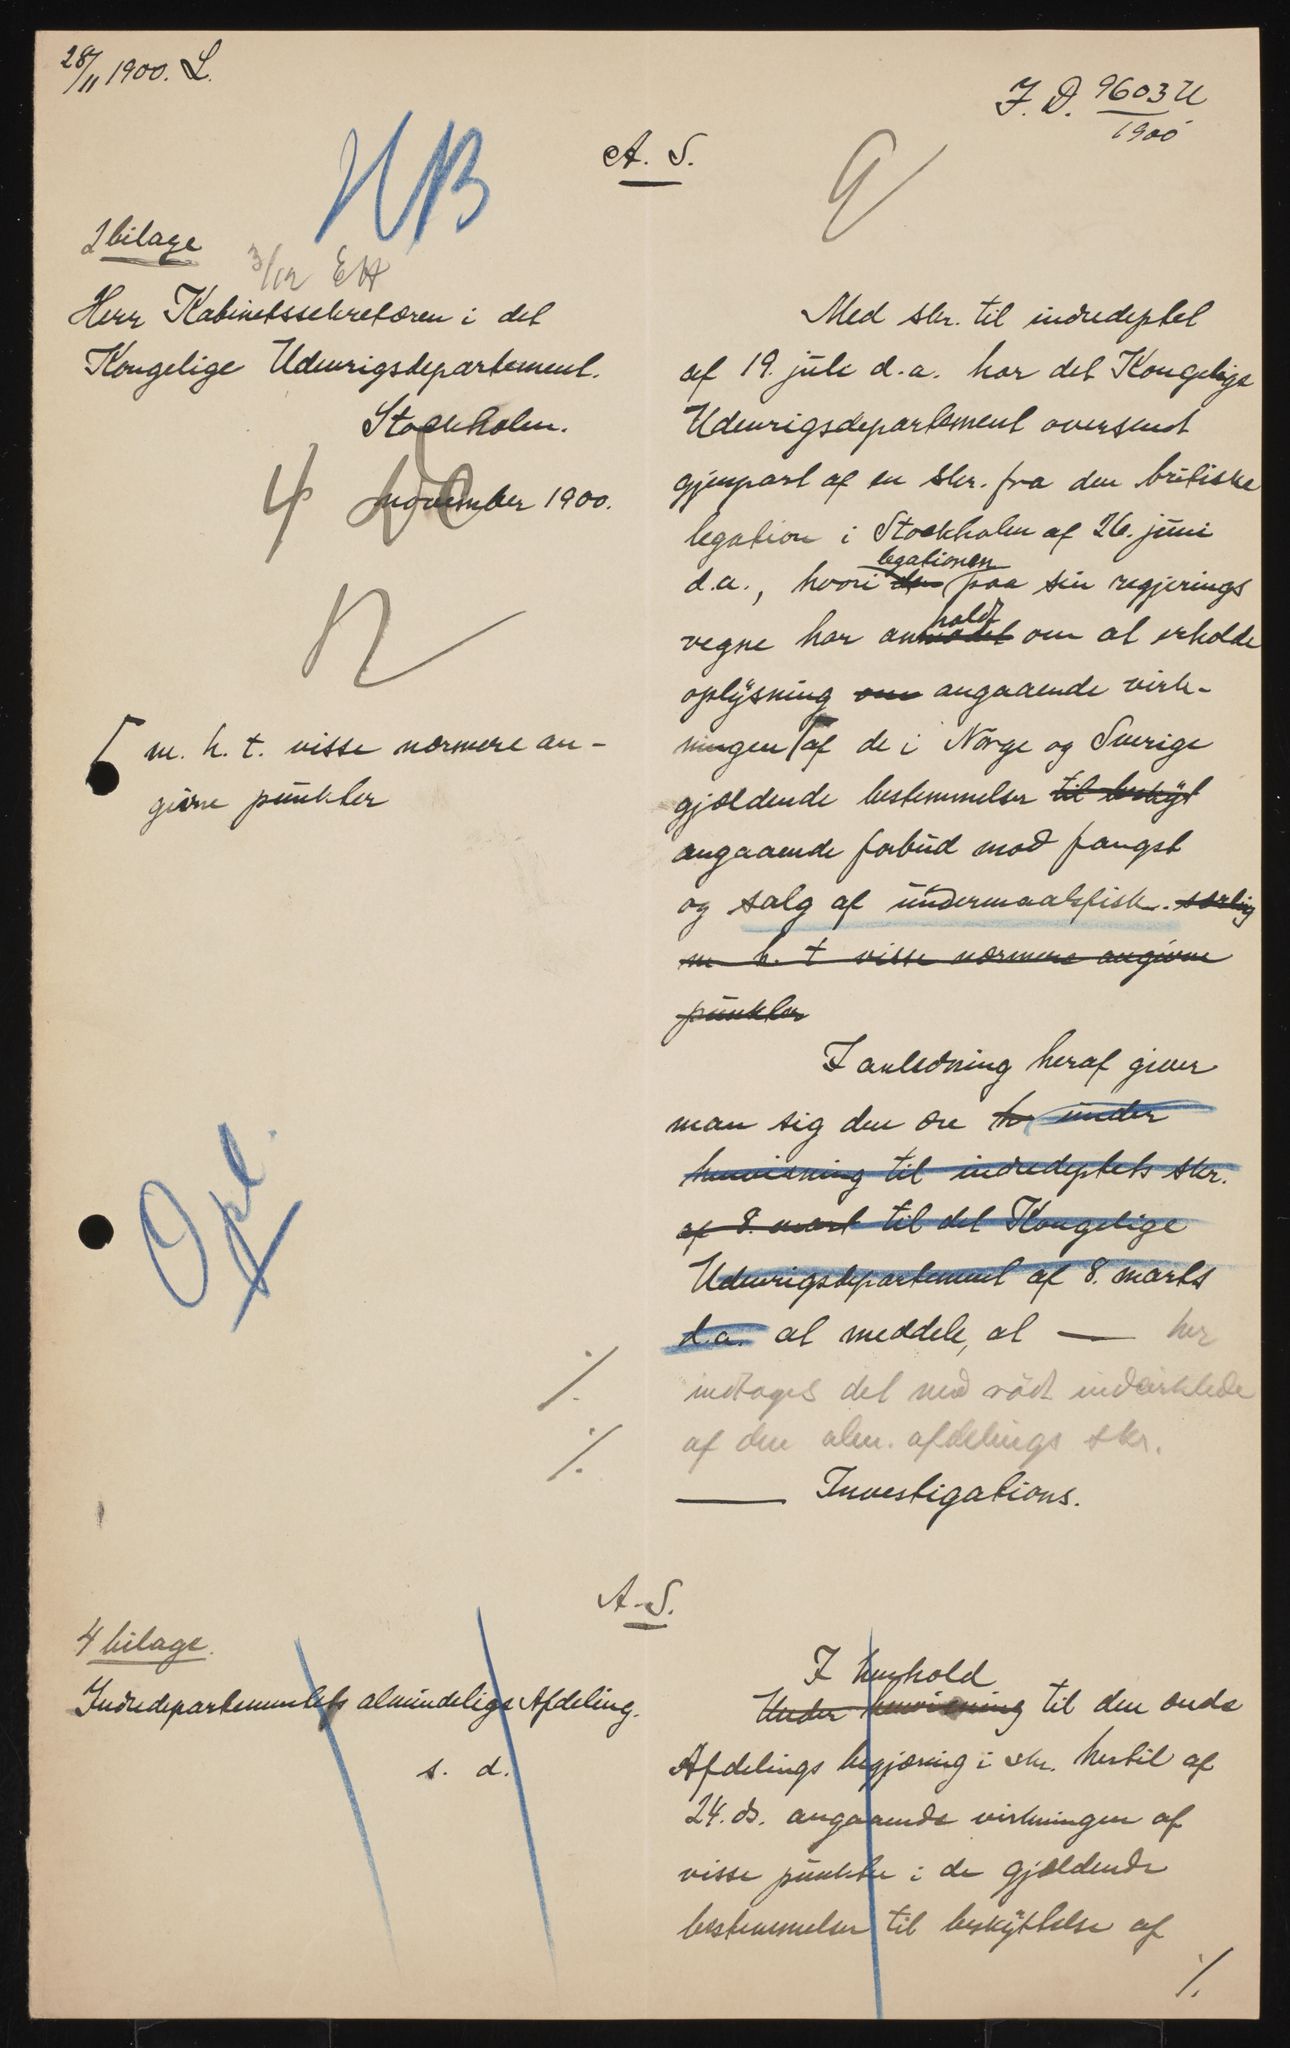 28/11 1900. L.
I. D. 9603 U
1900
A. S.
NB
2 bilage
3/12 EH
Herr Kabinetssekretæren i det
Kongelige Udenrigsdepartement.
Stockholm.
4 november 1900.
m. h. t. visse nærmere an-
givne punkter
Med skr. til indredeptet
af 19. juli d.a. har det Kongelige
Udenrigsdepartement oversendt
gjenpart af en skr. fra den britiske
legation i Stockholm af 26. juni
legationen
d.a., hvori den paa sin regjerings
holdt
vegne har anmodet om at erholde
oplysning om angaaende virk-
ningen af de i Norge og Sverige
gjældende bestemmelser til beskyt
angaaende forbud mod fangst
og salg af undermaalsfisk. særlig
m. h. t visse nærmere angivne
punkter
I anledning heraf giver
man sig den ære h under
henvisning til indredeptets skr.
af 8. mart til det Kongelige
Udenrigsdepartement af 8. marts
d.a. at meddele, at — her
indtages det med rödt indcirklede
af den alm. afdelings skr.
— Investigations.
Opl.
%
%
A. S.
4 bilage.
Indredepartementets almindelige Afdeling.
s. d.
I henhold
Under henvisning til den ærede
Afdelings begjæring i skr. hertil af
24. ds. angaaende virkningen af
visse punkter i de gjældende
bestemmelser til beskyttelse af
%